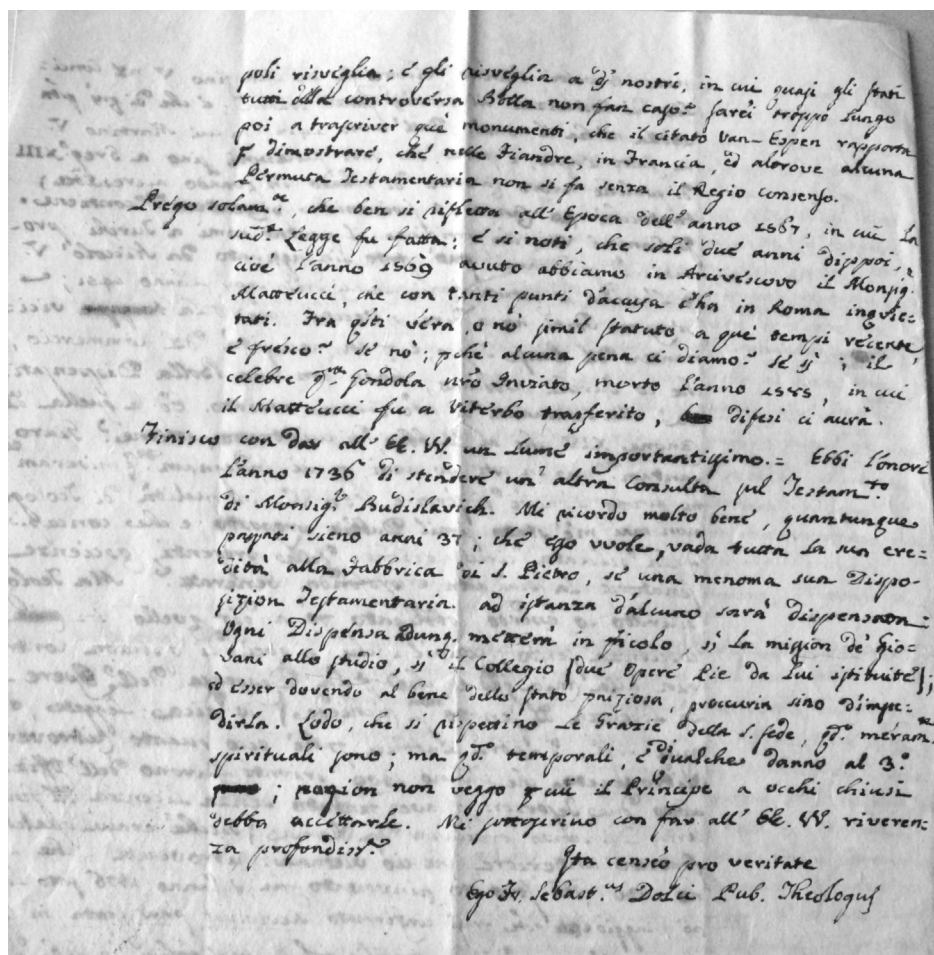 poli risveglia; e gli risveglia a dì nostri, in cui quasi gli stati
tutti della controversa Bolla non fan caso. Sarei troppo lungo
poi a trascriver que' monumenti, che il citato Van-Espen rapporta
p dimostrare, che nelle Fiandre, in Francia, ed altrove alcuna
Permuta Testamentaria non si fa senza il Regio consenso.
Prego solam.te, che ben si rifletta all' Epoca dell' anno 1567, in cui la
sud.a Legge fu fatta; e si noti, che soli due anni dippoi,
cioè l'anno 1569 avuto abbiamo in Arcivescovo il Monsig.r
Matteucci, che con tanti punti d'accusa c'ha in Roma inquie-
tati. Fra q̃sti v'era, o nò simil statuto a que' tempi recente,
e fresco? Se nò; pchè alcuna pena ci diamo? Se sì; il
celebre Gondola nr̃o Inviato, morto l'anno 1585, in cui
il Matteucci fu a Viterbo trasferito, difesi ci avrà.
Finisco con dar all' EE. VV. un lume importantissimo. = Ebbi l'onore
l'anno 1736 di stendere un' altra Consulta sul Testam.to
di Monsig.r Budislavich. Mi ricordo molto bene, quantunque
passati sieno anni 37; che ego vuole, vada tutta la sua ere-
dità alla Fabbrica di S. Pietro, se una menoma sua Dispo-
sizion Testamentaria ad istanza d'alcuno sarà dispensata =
Ogni Dispensa adunq. metterà in p̃icolo, sì la mission de' Gio-
vani allo studio, sì il Collegio [due Opere Pie da lui istituite];
ed esser dovendo al bene dello stato pniziosa, proccuria sino d'impe-
dirla. Lodo, che si rispettino le Grazie della S. Sede, qd.o meram.te
spirituali sono; ma qd.o temporali, e di qualche danno al 3.o
; ragion non veggo p cui il Principe a occhi chiusi
debba accettarle. Mi sottoscrivo con far all' EE. VV. riveren-
za profondiss.a
Ita censeo pro veritate
Ego Fr. Sebast.us Dolci Pub. Theologus